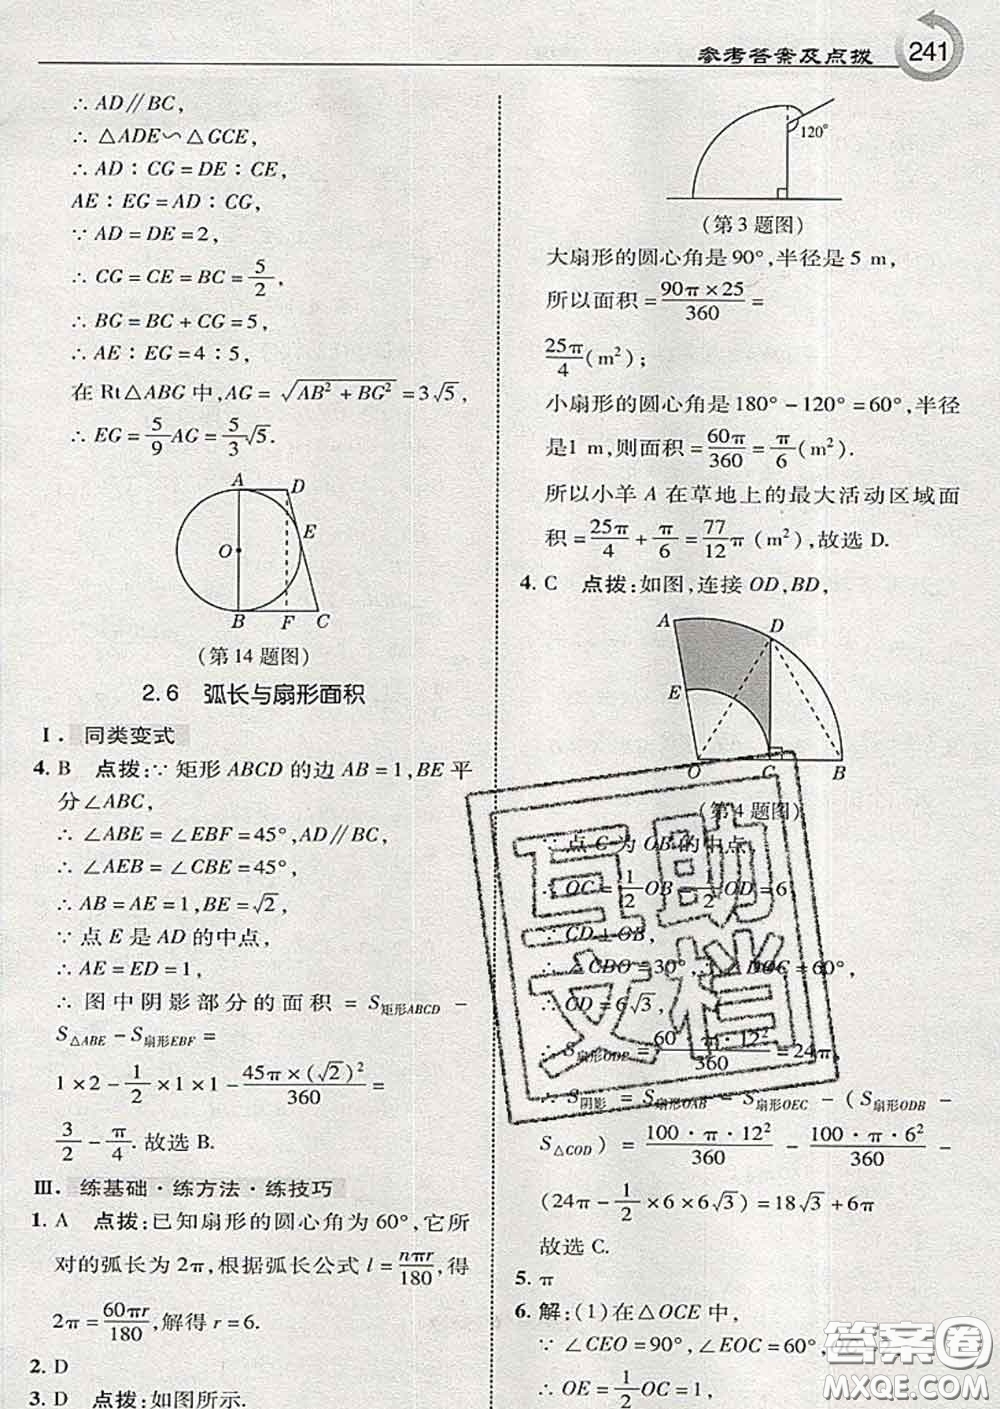 参考答案及点拨
241
∴ AD∥BC,
∴ △ADE∽△GCE,
∴ AD∶CG=DE∶CE,
AE∶EG=AD∶CG,
∵ AD=DE=2,
∴ CG=CE=BC=5/2,
∴ BG=BC+CG=5,
∴ AE∶EG=4∶5,
在 Rt△ABG 中,AG=√(AB²+BG²)=3√5,
∴ EG=5/9 AG=5/3 √5.
A D
E
O
B F C
(第14题图)
2.6 弧长与扇形面积
Ⅰ. 同类变式
4. B 点拨:∵ 矩形 ABCD 的边 AB=1,BE 平
分∠ABC,
∴ ∠ABE=∠EBF=45°,AD∥BC,
∴ ∠AEB=∠CBE=45°,
∴ AB=AE=1,BE=√2,
∵ 点 E 是 AD 的中点,
∴ AE=ED=1,
∴ 图中阴影部分的面积=S矩形ABCD-
S△ABE-S扇形EBF=
1×2-1/2×1×1-45π×(√2)²/360=
3/2-π/4. 故选 B.
Ⅲ. 练基础·练方法·练技巧
1. A 点拨:已知扇形的圆心角为 60°,它所
对的弧长为 2π,根据弧长公式 l=nπr/180,得
2π=60πr/180,解得 r=6.
2. D
3. D 点拨:如图所示.
120°
(第3题图)
大扇形的圆心角是 90°,半径是 5 m,
所以面积=90π×25/360=
25π/4(m²);
小扇形的圆心角是 180°-120°=60°,半径
是1 m,则面积=60π/360=π/6(m²).
所以小羊 A 在草地上的最大活动区域面
积=25π/4+π/6=77/12π (m²),故选 D.
4. C 点拨:如图,连接 OD,BD,
A D
E
O C B
(第4题图)
∵ 点 C 为 OB 的中点,
∴ OC=1/2OB=1/2OD=6,
∵ CD⊥OB,
∴ ∠CDO=30°,∴ ∠DOC=60°,
∴ CD=6√3,
∴ S扇形ODB=60·π·12²/360=24π,
∴ S阴影=S扇形OAB-S扇形OEC-(S扇形ODB-
S△COD)=100·π·12²/360-100·π·6²/360-
(24π-1/2×6×6√3)=18√3+6π
故选 C.
5. π
6. 解:(1)在△OCE 中,
∵ ∠CEO=90°,∠EOC=60°,
∴ OE=1/2OC=1,
互助
文档
答案圈
MXQE.COM